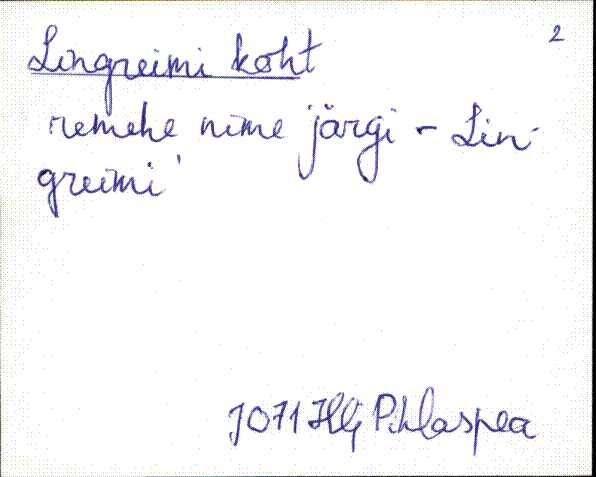 2
Lingreimi koht
remehe nime järgi - Lin-
greimi'
J071 Hlj P. Ulaspea